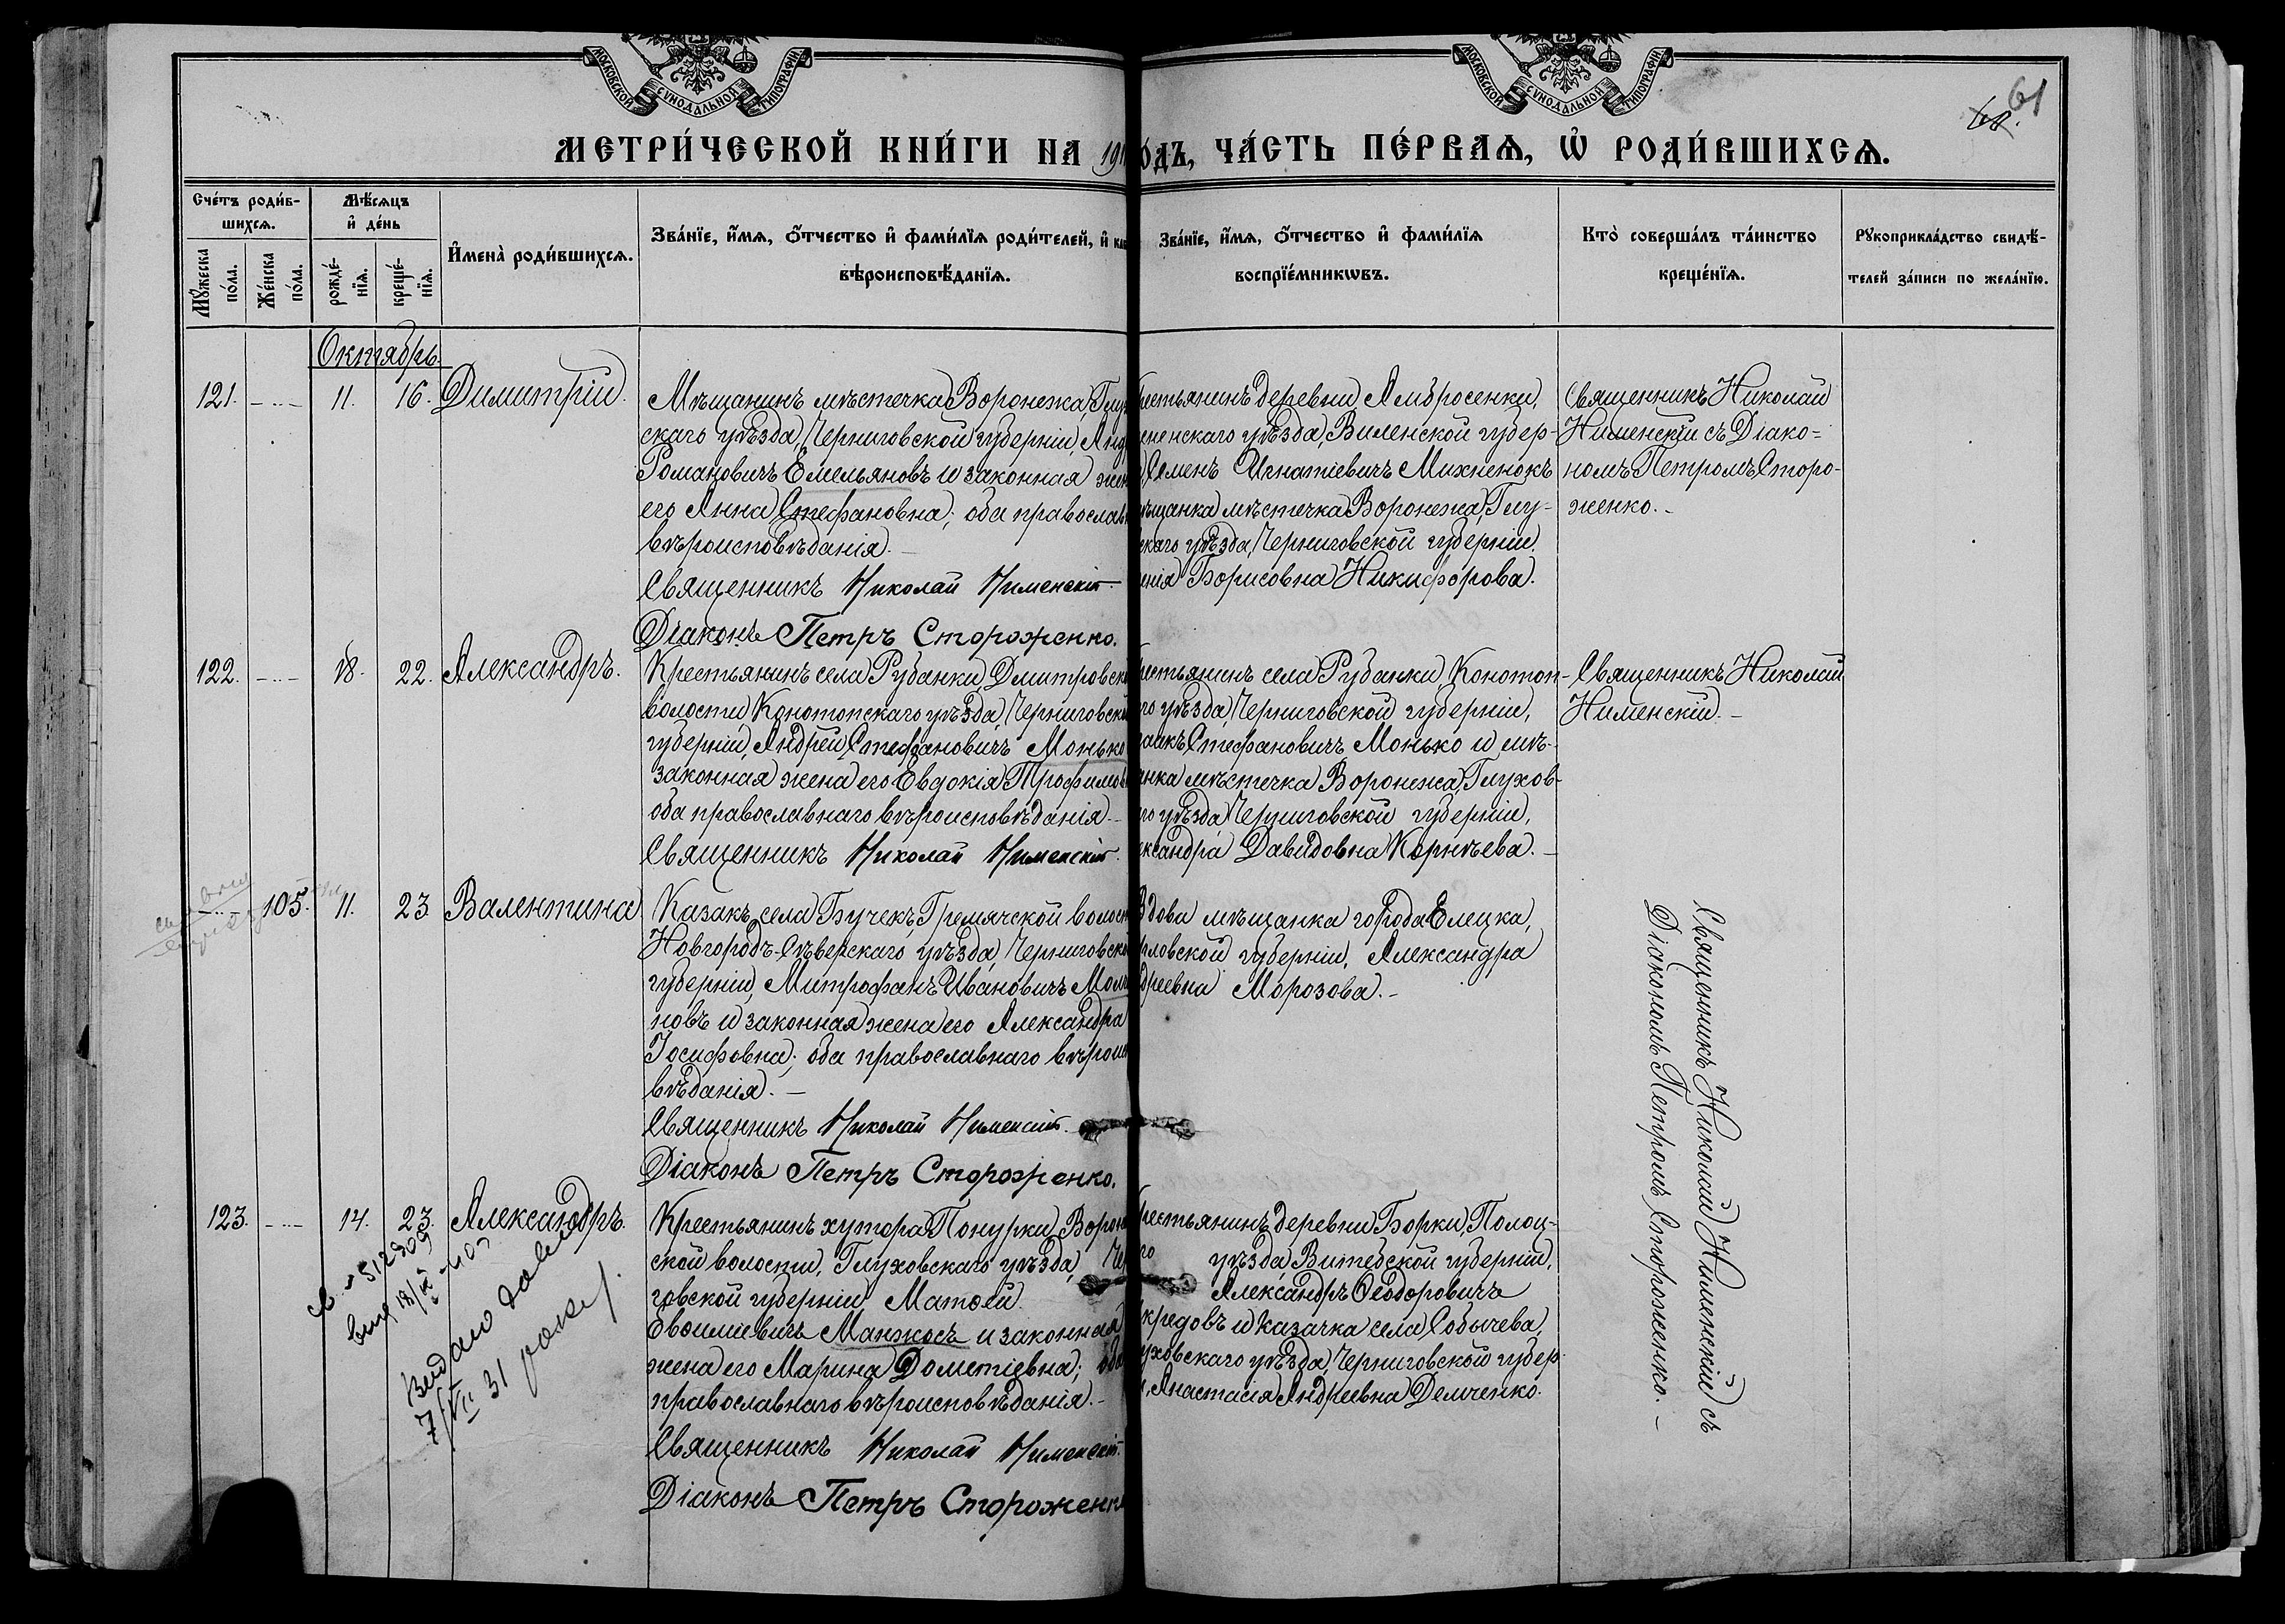 МОСКОВСКОЙ СѴНОДАЛЬНОЙ ТИПОГРАФІИ
МОСКОВСКОЙ СѴНОДАЛЬНОЙ ТИПОГРАФІИ
61
МЕТРИ́ЧЕСКОЙ КНИ́ГИ НА 191
ОДЪ, ЧА́СТЬ ПЕ́РВАѦ, Ѡ҆ РОДИ́ВШИХСѦ.
Сче́тъ роди́в-
шихсѧ.
Мѣ́сѧцъ
и҆ де́нь
Мꙋ́жеска
по́ла.
Же́нска
по́ла.
рожде́-
нїѧ.
креще́-
нїѧ.
И҆мена̀ роди́вшихсѧ.
Зва́нїе, и҆́мѧ, о҆́тчество и҆ фами́лїѧ роди́телей, и҆ как
вѣроисповѣ́данїѧ.
Зва́нїе, и҆́мѧ, о҆́тчество и҆ фами́лїѧ
воспрїе́мникѡвъ.
Кто̀ соверша́лъ та́инство
креще́нїѧ.
Рꙋкоприкла́дство свидѣ́-
телей за́писи по жела́нїю.
Октябрь.
121. 11. 16. Димитрій.
Мѣщанинъ мѣстечка Воронежа, Глух
скаго уѣзда, Черниговской губерніи, Анд
Романовичъ Емельяновъ и законная жен
его Анна Стефановна; оба православн
вѣроисповѣданія.
Священникъ Николай Нименскій
Діаконъ Петръ Стороженко.
рестьянинъ деревни Амбросенки,
сненскаго уѣзда, Виленской губер-
Семенъ Игнатіевичъ Михненокъ
ѣщанка мѣстечка Воронежа, Глу-
скаго уѣзда, Черниговской губерніи,
нія Борисовна Никифорова.
Священникъ Николай
Нименскій съ Діако=
номъ Петромъ Сторо-
женко.
122. 18. 22. Александръ.
Крестьянинъ села Рубанки Дмитровск
волости, Конотопскаго уѣзда, Черниговск
губерніи, Андрей Стефановичъ Монько
законная жена его Евдокія Трофимов
оба православнаго вѣроисповѣданія.
Священникъ Николай Нименскій.
рестьянинъ села Рубанки, Конотоп-
го уѣзда, Черниговской губерніи,
аакъ Стефановичъ Монько и мѣ-
анка мѣстечка Воронежа, Глухов-
го уѣзда Черниговской губерніи,
ександра Давидовна Корнѣева.
Священникъ Николай
Нименскій.
105. 11. 23 Валентина
Казакъ села Бучекъ, Гремячской волост
Новгородъ-Сѣверскаго уѣзда, Черниговско
губерніи, Митрофанъ Ивановичъ Мол
новъ и законная жена его Александра
Іосифовна; оба православнаго вѣроис
вѣданія.
Священникъ Николай Нименскій.
Діаконъ Петръ Стороженко.
Вдова мѣщанка города Елецка,
рловской губерніи, Александра
дреевна Морозова.
Священникъ Николай Нименскій съ
Діакономъ Петромъ Стороженко.
123. 14. 23. Александръ.
Видано довід
7/VII 31 року
Крестьянинъ хутора Понурки, Ворон
ской волости, Глуховскаго уѣзда, Чер
говской губерніи Матѳей
Евѳиміевичъ Манжосъ и законная
жена его Марина Дометіевна; оба
православнаго вѣроисповѣданія.
Священникъ Николай Нименскій.
Діаконъ Петръ Стороженк
рестьянинъ деревни Борки, Полоц-
го уѣзда, Витебской губерніи,
Александръ Ѳеодоровичъ
кредовъ и казачка села Собычева,
уховскаго уѣзда, Черниговской губер
Анастасія Андреевна Демченко.